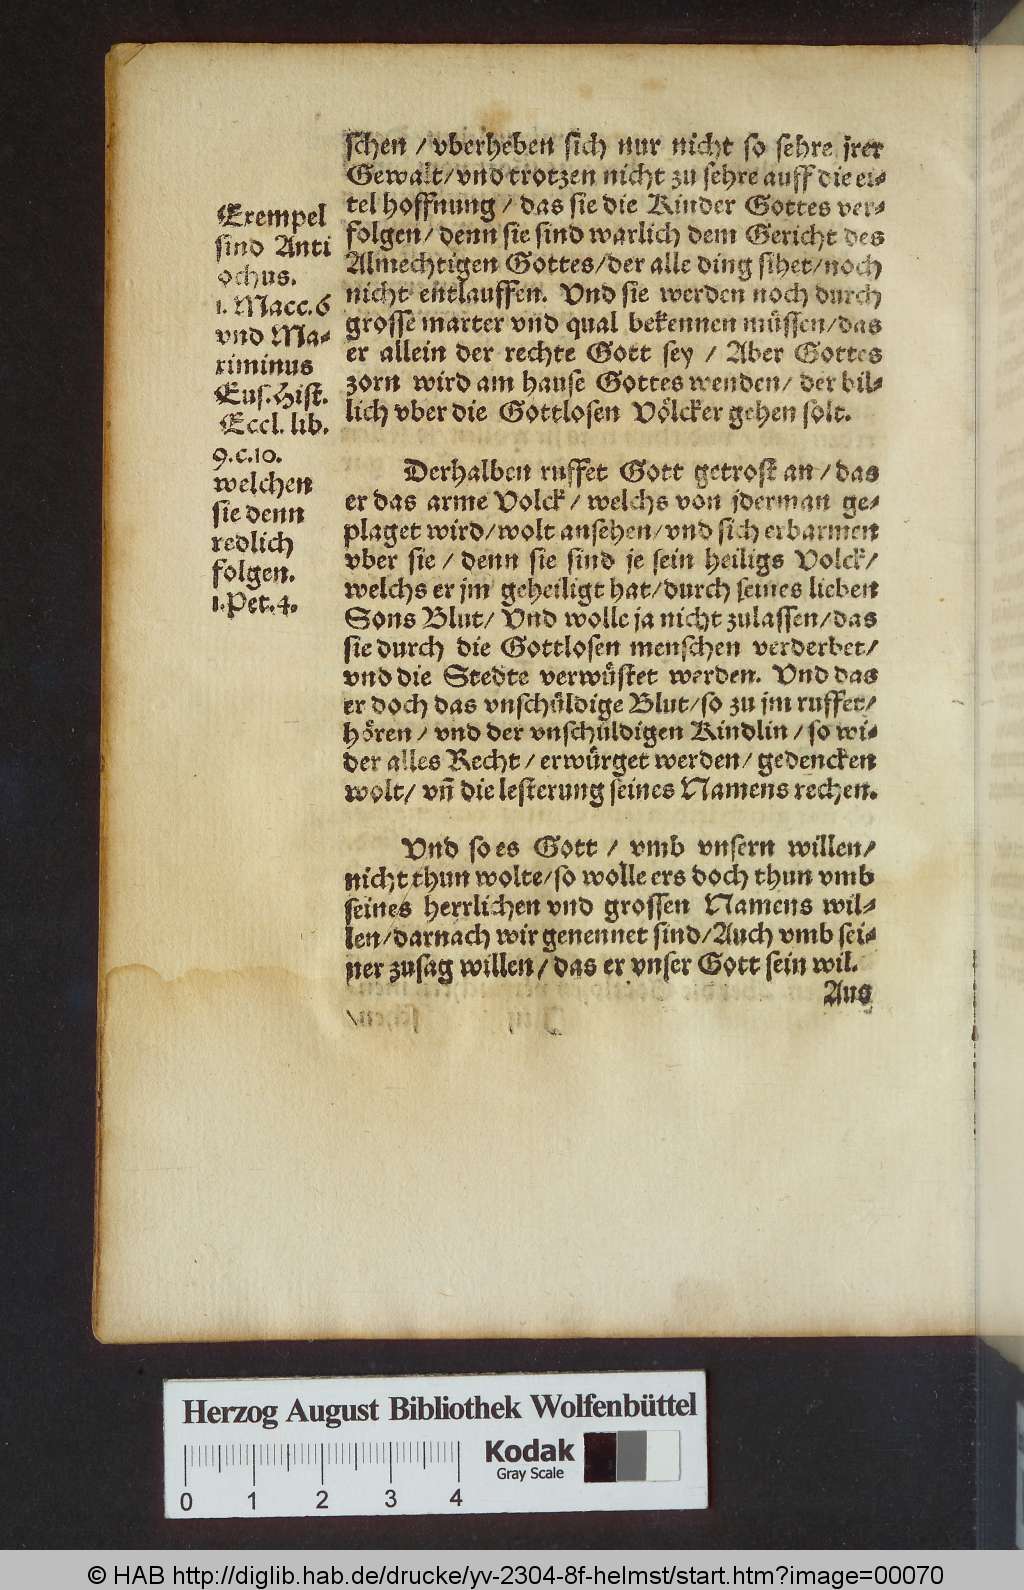 schen / vberheben sich nur nicht so sehre jrer
Gewalt/ vnd trotzen nicht zu sehre auff die ei⸗
tel hoffnung / das sie die Kinder Gottes ver⸗
folgen/ denn sie sind warlich dem Gericht des
Almechtigen Gottes/ der alle ding sihet/ noch
nicht entlauffen. Vnd sie werden noch durch
grosse marter vnd qual bekennen müssen/ das
er allein der rechte Gott sey / Aber Gottes
zorn wird am hause Gottes wenden/ der bil⸗
lich vber die Gottlosen Völcker gehen solt.
Exempel
sind Anti
ochus.
1. Macc. 6
vnd Ma⸗
ximinus
Eus. Hist.
Eccl. lib.
9. c. 10.
welchen
sie denn
redlich
folgen.
1. Pet. 4.
Derhalben ruffet Gott getrost an / das
er das arme Volck / welchs von jderman ge⸗
plaget wird/ wolt ansehen/ vnd sich erbarmen
vber sie / denn sie sind je sein heiligs Volck/
welchs er jm geheiligt hat/ durch seines lieben
Sons Blut/ Vnd wolle ja nicht zulassen/ das
sie durch die Gottlosen menschen verderbet/
vnd die Stedte verwüstet werden. Vnd das
er doch das vnschüldige Blut/ so zu jm ruffet/
hören / vnd der vnschüldigen Kindlin / so wi⸗
der alles Recht / erwürget werden/ gedencken
wolt/ vñ die lesterung seines Namens rechen.
Vnd so es Gott / vmb vnsern willen/
nicht thun wolte/ so wolle ers doch thun vmb
seines herrlichen vnd grossen Namens wil⸗
len/ darnach wir genennet sind/ Auch vmb sei⸗
ner zusag willen/ das er vnser Gott sein wil.
Aus
Herzog August Bibliothek Wolfenbüttel
Kodak
Gray Scale
0 1 2 3 4
© HAB http://diglib.hab.de/drucke/yv-2304-8f-helmst/start.htm?image=00070